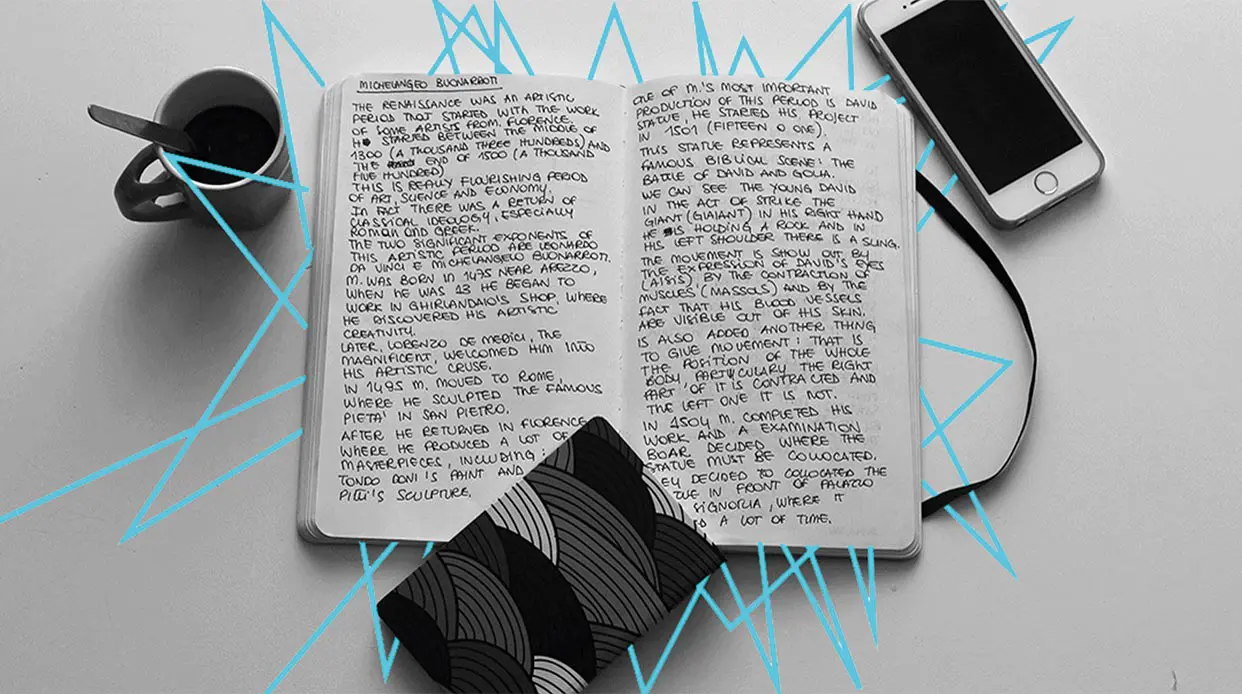 MICHELANGEO BUONARROTI
THE RENAISSANCE WAS AN ARTISTIC
PERIOD THAT STARTED WITH THE WORK
OF SOME ARTISTS FROM FLORENCE.
STARTED BETWEEN THE MIDDLE OF
1300 (A THOUSAND THREE HUNDREDS) AND
THE END OF 1500 (A THOUSAND
FIVE HUNDRED)
THIS IS REALLY FLOURISHING PERIOD
OF ART, SCIENCE AND ECONOMY.
IN FACT THERE WAS A RETURN OF
CLASSICAL IDEOLOGY, ESPECIALLY
ROMAN AND GREEK.
THE TWO SIGNIFICANT EXPONENTS OF
THIS ARTISTIC PERIOD ARE LEONARDO
DA VINCI E MICHELANGELO BUONARROTI.
M. WAS BORN IN 1475 NEAR AREZZO,
WHEN HE WAS 13 HE BEGAN TO
WORK IN GHIRLANDAIO'S SHOP, WHERE
HE DISCOVERED HIS ARTISTIC
CREATIVITY.
LATER, LORENZO DE MEDICI, THE
MAGNIFICENT, WELCOMED HIM INTO
HIS ARTISTIC CRUSE.
IN 1495 M. MOVED TO ROME,
WHERE HE SCULPTED THE FAMOUS
PIETA' IN SAN PIETRO.
AFTER HE RETURNED IN FLORENCE
WHERE HE PRODUCED A LOT OF
MASTERPIECES, INCLUDING:
TONDO DONI'S PAINT AND
PITTI'S SCULPTURE.
ONE OF M.'S MOST IMPORTANT
PRODUCTION OF THIS PERIOD IS DAVID
STATUE, HE STARTED HIS PROJECT
IN 1501 (FIFTEEN O ONE).
THIS STATUE REPRESENTS A
FAMOUS BIBLICAL SCENE: THE
BATTLE OF DAVID AND GOLIA.
WE CAN SEE THE YOUNG DAVID
IN THE ACT OF STRIKE THE
GIANT (GIAIANT) IN HIS RIGHT HAND
HE IS HOLDING A ROCK AND IN
HIS LEFT SHOULDER THERE IS A SLING.
THE MOVEMENT IS SHOW OUT BY
THE EXPRESSION OF DAVID'S EYES
(AISIS), BY THE CONTRACTION OF
MUSCLES (MASSOLS) AND BY THE
FACT THAT HIS BLOOD VESSELS
ARE VISIBLE OUT OF HIS SKIN.
IS ALSO ADDED ANOTHER THING
TO GIVE MOVEMENT: THAT IS
THE POSITION OF THE WHOLE
BODY, PARTICULARY THE RIGHT
PART OF IT IS CONTRACTED AND
THE LEFT ONE IT IS NOT.
IN 1504 M. COMPLETED HIS
WORK AND A EXAMINATION
BOAR DECIDED WHERE THE
STATUE MUST BE COLLOCATED.
EY DECIDED TO COLLOCATED THE
TUE IN FRONT OF PALAZZO
SIGNORIA, WHERE IT
A LOT OF TIME.